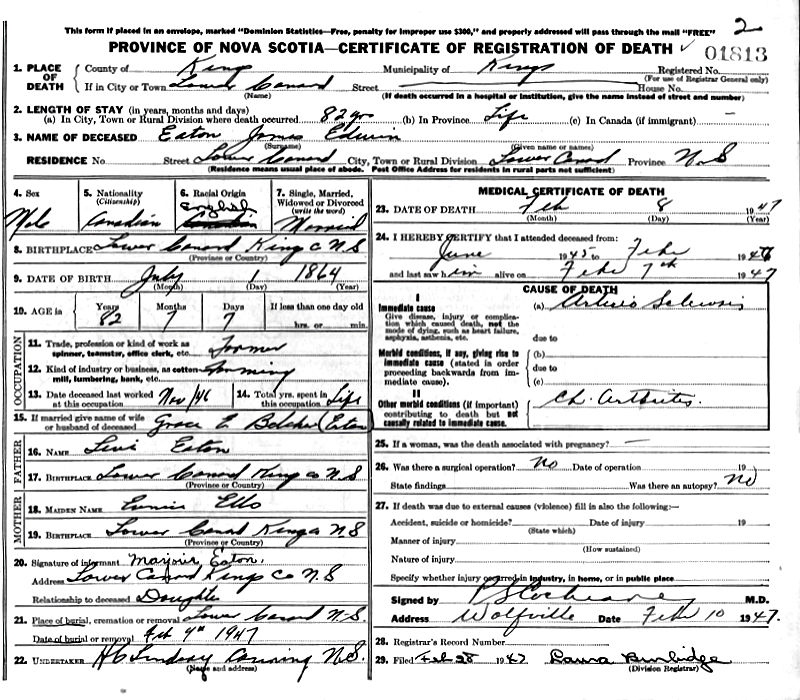 This form if placed in an envelope, marked "Dominion Statistics—Free, penalty for improper use $300," and properly addressed will pass through the mail "FREE" 2
PROVINCE OF NOVA SCOTIA—CERTIFICATE OF REGISTRATION OF DEATH ✓ 01813
1. PLACE OF DEATH County of Kings Municipality of Kings Registered No. (For use of Registrar General only)
If in City or Town Lower Canard (Name) Street House No.
(If death occurred in a hospital or institution, give the name instead of street and number)
2. LENGTH OF STAY (in years, months and days)
(a) In City, Town or Rural Division where death occurred 82 yrs (b) In Province Life (c) In Canada (if immigrant) —
3. NAME OF DECEASED Eaton James Edwin
(Surname) (Given name or names)
RESIDENCE No Street Lower Canard City, Town or Rural Division Lower Canard Province N.S
(Residence means usual place of abode. Post Office Address for residents in rural parts not sufficient)
4. Sex Male
5. Nationality (Citizenship) Canadian
6. Racial Origin English Canadian
7. Single, Married, Widowed or Divorced (write the word) Married
8. BIRTHPLACE Lower Canard Kings Co N.S
(Province or Country)
9. DATE OF BIRTH July 1 1864
(Month) (Day) (Year)
10. AGE in Years 82 Months 7 Days 7 If less than one day old hrs. or min.
OCCUPATION
11. Trade, profession or kind of work as spinner, teamster, office clerk, etc. Farmer
12. Kind of industry or business, as cotton mill, lumbering, bank, etc. Farming
13. Date deceased last worked at this occupation Nov/46 14. Total yrs. spent in this occupation Life
15. If married give name of wife or husband of deceased Grace E Belcher (Eaton)
FATHER
16. NAME Levi Eaton
17. BIRTHPLACE Lower Canard Kings Co N S
(Province or Country)
MOTHER
18. MAIDEN NAME Eunice Ells
19. BIRTHPLACE Lower Canard Kings N.S
(Province or Country)
20. Signature of informant Marjorie Eaton.
Address Lower Canard Kings Co N.S
Relationship to deceased Daughter
21. Place of burial, cremation or removal Lower Canard N.S.
Date of burial or removal 1947
22. UNDERTAKER H C Lindsay Canning N.S.
(Name and address)
MEDICAL CERTIFICATE OF DEATH
23. DATE OF DEATH Feb 8 1947
(Month) (Day) (Year)
24. I HEREBY CERTIFY that I attended deceased from:
June 1945 to Feb
and last saw him alive on Feb 7th 1947
CAUSE OF DEATH
I
Immediate cause (a) Arterio Sclerosis
Give disease, injury or complication which caused death, not the mode of dying, such as heart failure, asphyxia, asthenia, etc. due to
Morbid conditions, if any, giving rise to immediate cause (stated in order proceeding backwards from immediate cause). (b)
due to
(c)
II
Other morbid conditions (if important) contributing to death but not causally related to immediate cause. Ch. Arthritis.
25. If a woman, was the death associated with pregnancy? —
26. Was there a surgical operation? No Date of operation 19
State findings Was there an autopsy? No
27. If death was due to external causes (violence) fill in also the following:—
Accident, suicide or homicide? Date of injury 19
(State which)
Manner of injury
(How sustained)
Nature of injury
Specify whether injury occurred in industry, in home, or in public place
Signed by Cochrane M.D.
Address Wolfville Date Feb 10 1947.
28. Registrar's Record Number
29. Filed Feb 28 1947 Laura Burbidge
(Division Registrar)